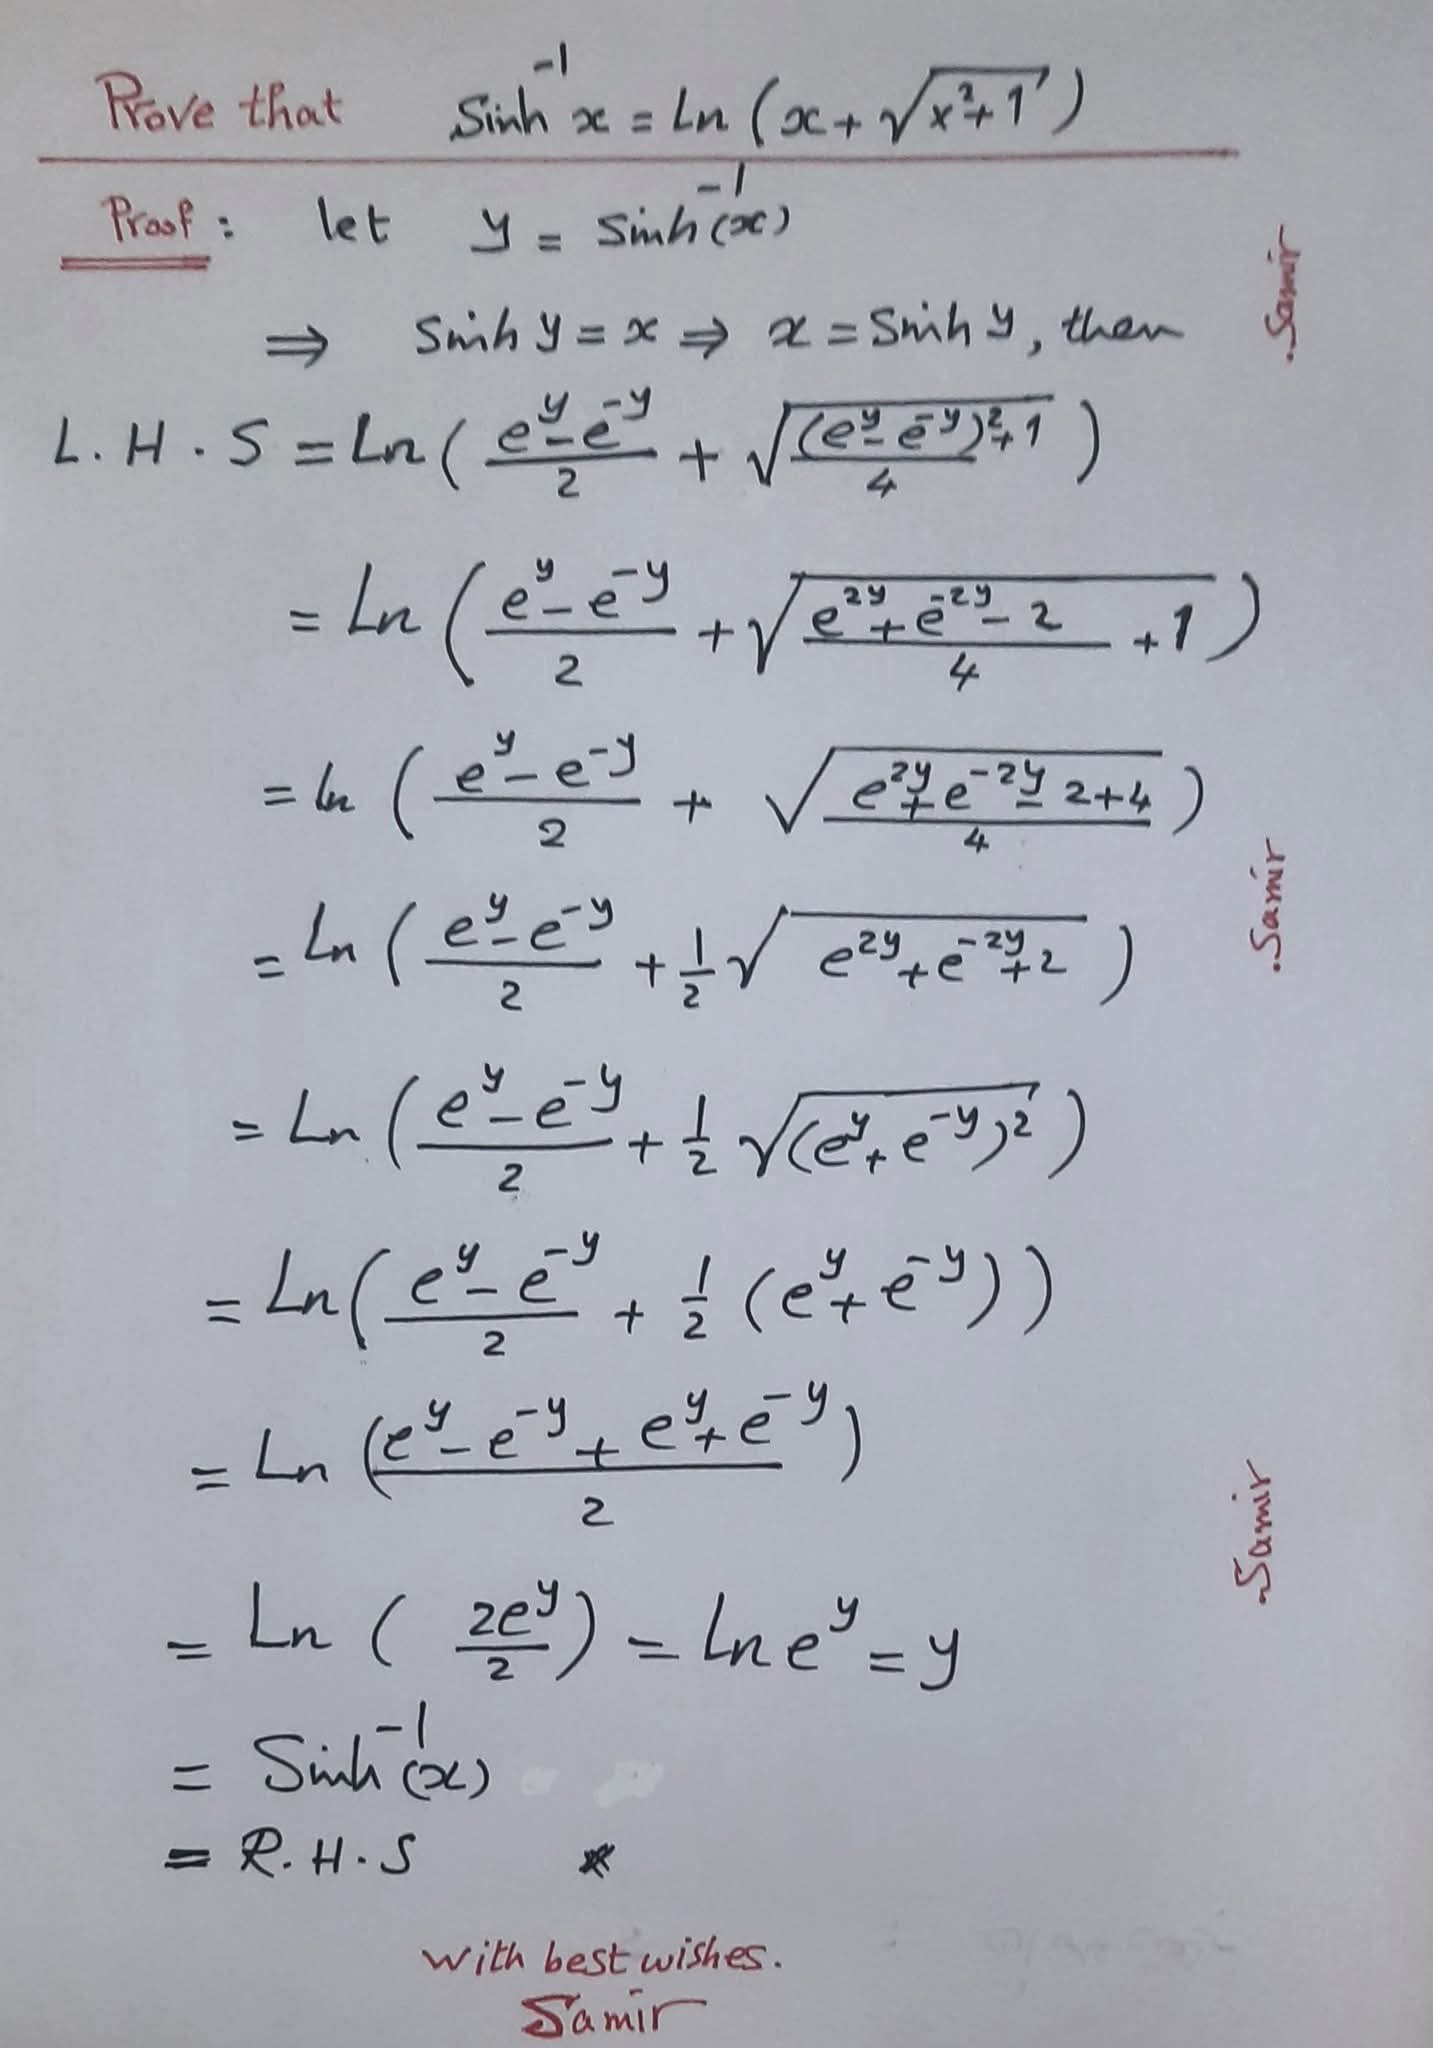 Prove that Sinh⁻¹ x = Ln (x + √(x²+1))
Proof : let y = Sinh⁻¹(x)
⇒ Sinh y = x ⇒ x = Sinh y, then
L.H.S = Ln ( (e^y - e^-y)/2 + √((e^y - e^-y)²/4 + 1) )
= Ln ( (e^y - e^-y)/2 + √((e^2y + e^-2y - 2)/4 + 1) )
= ln ( (e^y - e^-y)/2 + √((e^2y + e^-2y - 2 + 4)/4) )
= Ln ( (e^y - e^-y)/2 + 1/2 √(e^2y + e^-2y + 2) )
= Ln ( (e^y - e^-y)/2 + 1/2 √((e^y + e^-y)²) )
= Ln ( (e^y - e^-y)/2 + 1/2 (e^y + e^-y) )
= Ln ( (e^y - e^-y + e^y + e^-y)/2 )
= Ln ( 2e^y/2 ) = Ln e^y = y
= Sinh⁻¹(x)
= R.H.S *
with best wishes.
Samir
.Samir
.Samir
.Samir